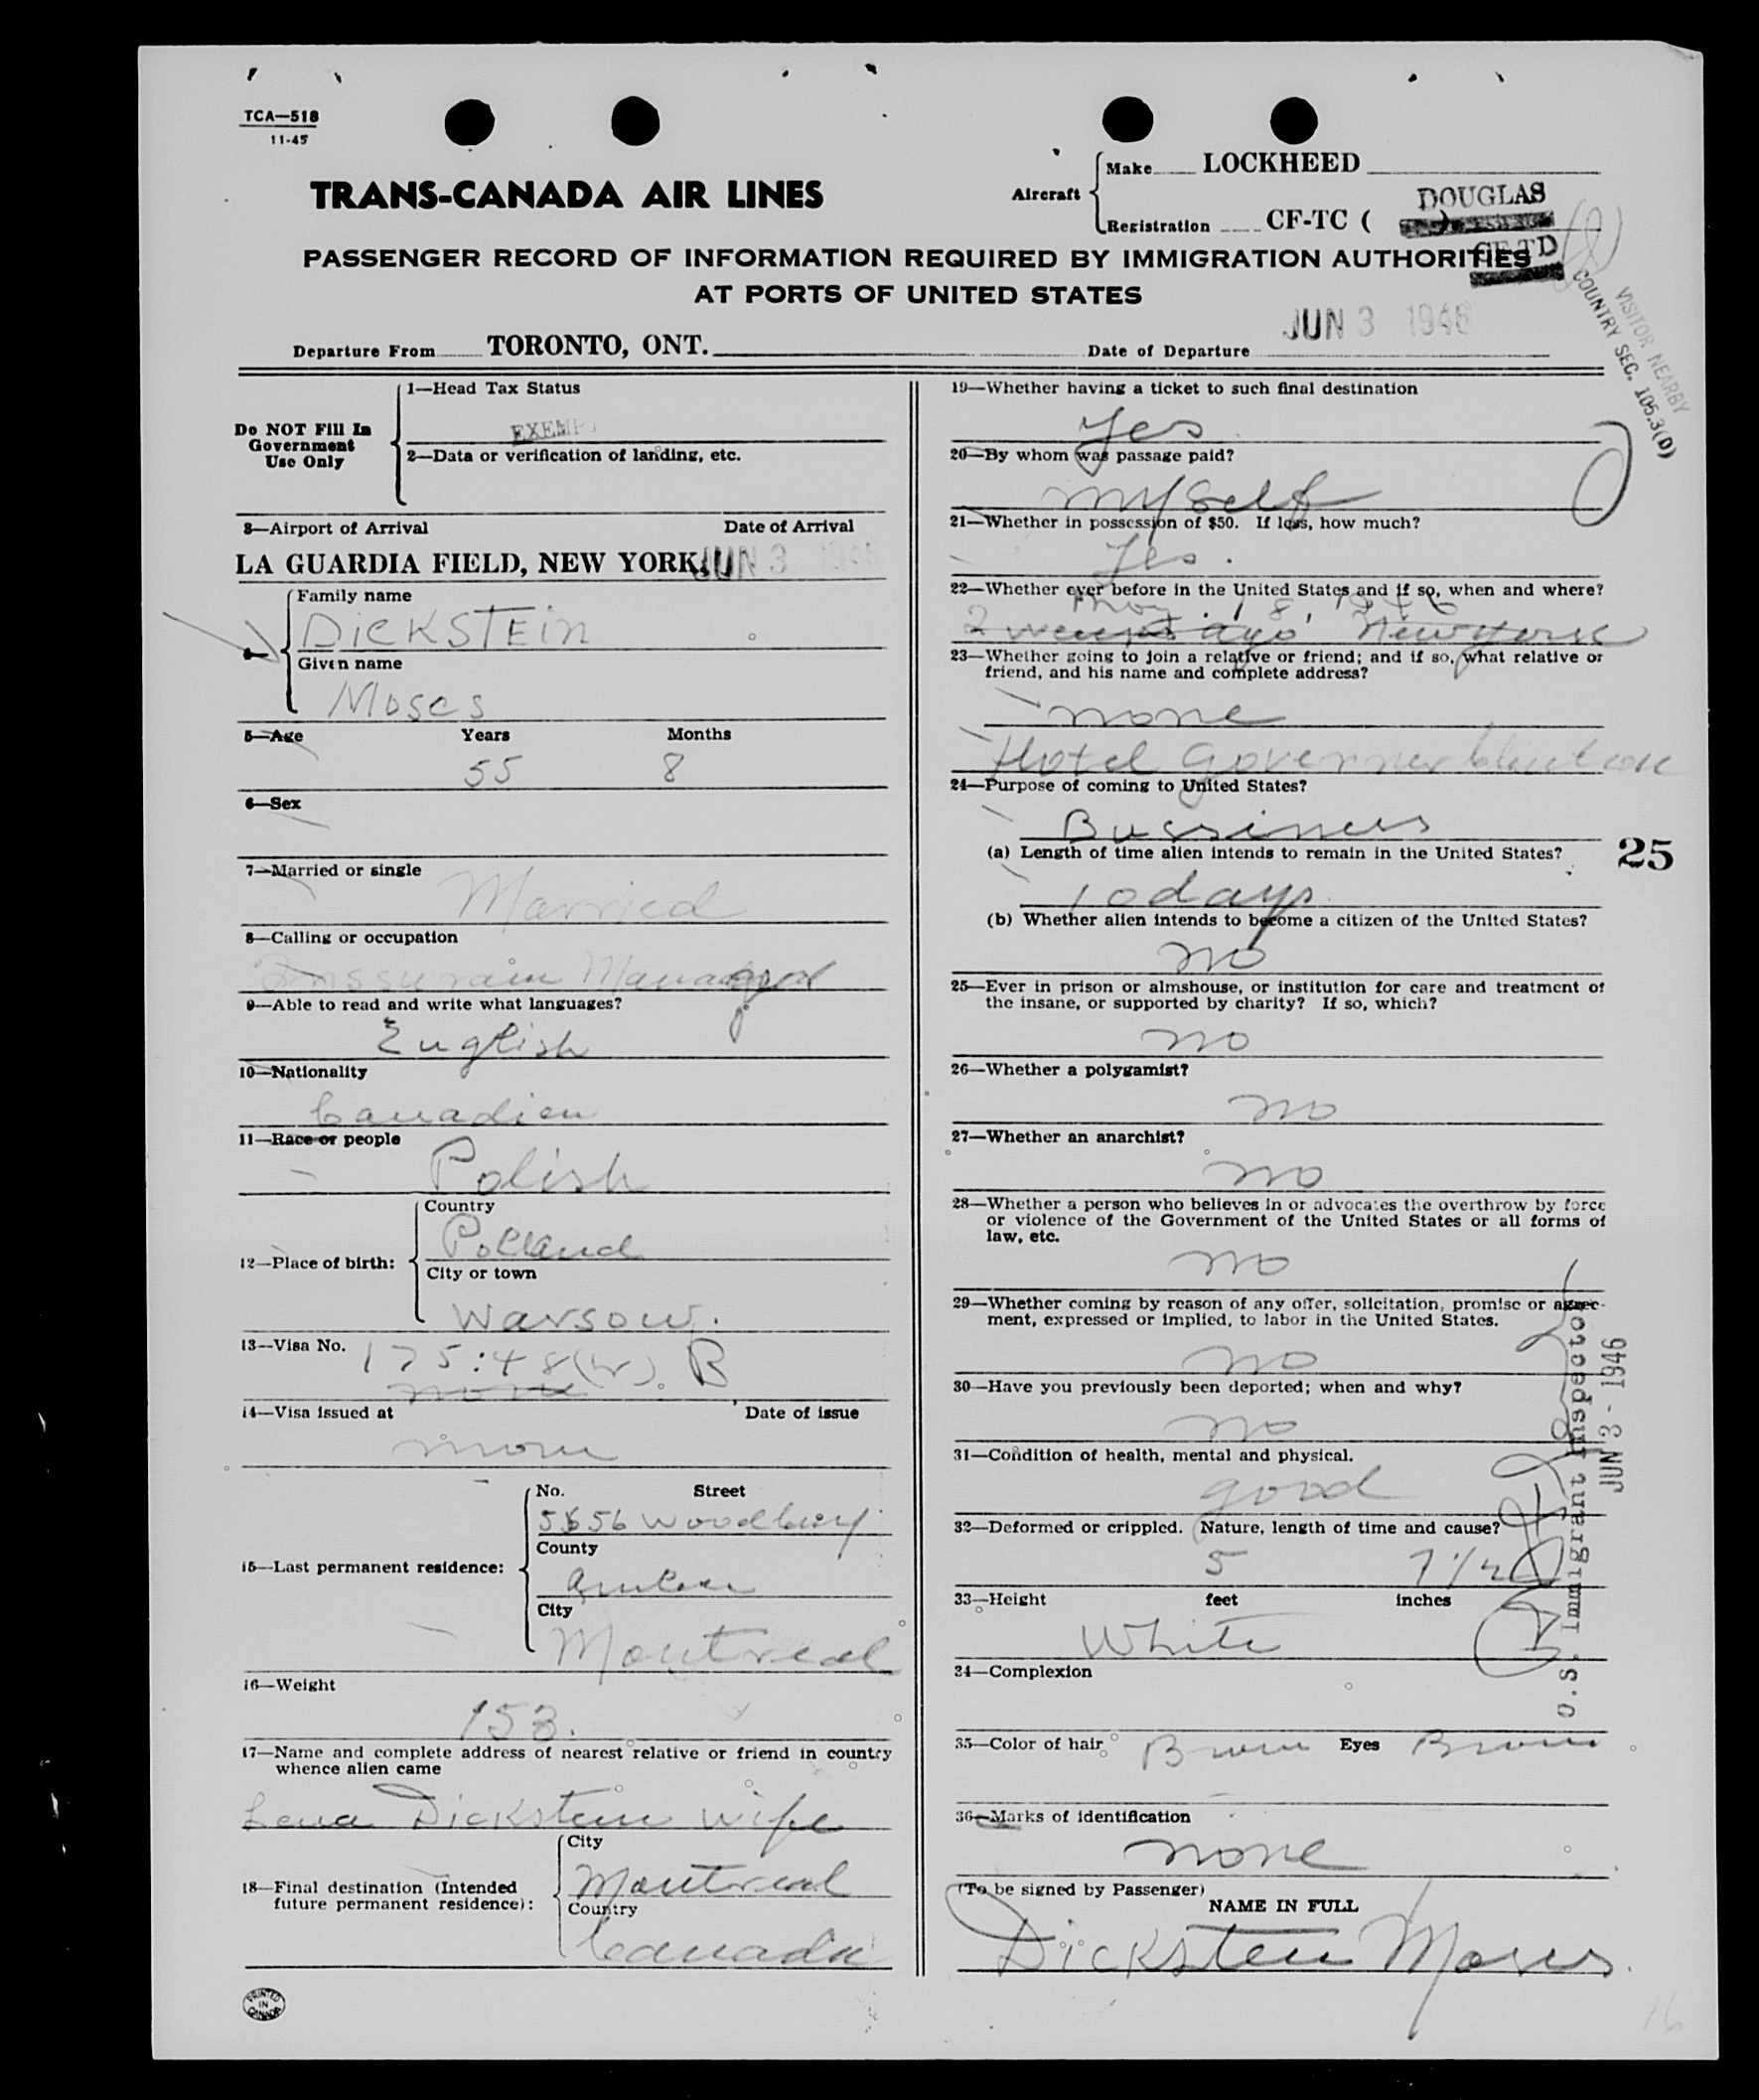 TCA—518
11-45
TRANS-CANADA AIR LINES
Aircraft
Make LOCKHEED
DOUGLAS
Registration CF-TC (
CF-TD
PASSENGER RECORD OF INFORMATION REQUIRED BY IMMIGRATION AUTHORITIES
AT PORTS OF UNITED STATES
VISITOR NEARBY
COUNTRY SEC. 105.3(D)
Departure From TORONTO, ONT.
Date of Departure JUN 3 1946
Do NOT Fill In
Government
Use Only
1—Head Tax Status
EXEMPT
2—Data or verification of landing, etc.
3—Airport of Arrival Date of Arrival
LA GUARDIA FIELD, NEW YORK, JUN 3 1946
4—
Family name
DICKSTEIN
Given name
Moses
5—Age Years Months
55 8
6—Sex
7—Married or single
Married
8—Calling or occupation
9—Able to read and write what languages?
English
10—Nationality
Canadien
11—Race or people
Polish
12—Place of birth:
Country
Polland
City or town
Warsow.
13—Visa No. 175:48(w). B
none
14—Visa issued at Date of issue
none
15—Last permanent residence:
No. Street
5656 Woodbury
County
City
Montreal
16—Weight
153.
17—Name and complete address of nearest relative or friend in country
whence alien came
Lena Dickstein wife
18—Final destination (Intended
future permanent residence):
City
Montreal
Country
Canada
PRINTED
IN
CANADA
19—Whether having a ticket to such final destination
Yes
20—By whom was passage paid?
myself
21—Whether in possession of $50. If less, how much?
Yes.
22—Whether ever before in the United States and if so, when and where?
May. 18, 1946
2 weeks ago New York
23—Whether going to join a relative or friend; and if so, what relative or
friend, and his name and complete address?
none
Hotel Governer Clinton
24—Purpose of coming to United States?
Bussiness
(a) Length of time alien intends to remain in the United States?
25
10 days
(b) Whether alien intends to become a citizen of the United States?
no
25—Ever in prison or almshouse, or institution for care and treatment of
the insane, or supported by charity? If so, which?
no
26—Whether a polygamist?
no
27—Whether an anarchist?
no
28—Whether a person who believes in or advocates the overthrow by force
or violence of the Government of the United States or all forms of
law, etc.
no
29—Whether coming by reason of any offer, solicitation, promise or agree-
ment, expressed or implied, to labor in the United States.
no
30—Have you previously been deported; when and why?
no
31—Condition of health, mental and physical.
good
32—Deformed or crippled. Nature, length of time and cause?
5 7 1/2
33—Height feet inches
White
34—Complexion
35—Color of hair Brown Eyes Brown
36—Marks of identification
none
U.S. Immigrant Inspector
JUN 3 - 1946
(To be signed by Passenger)
NAME IN FULL
Dickstein Moses
16